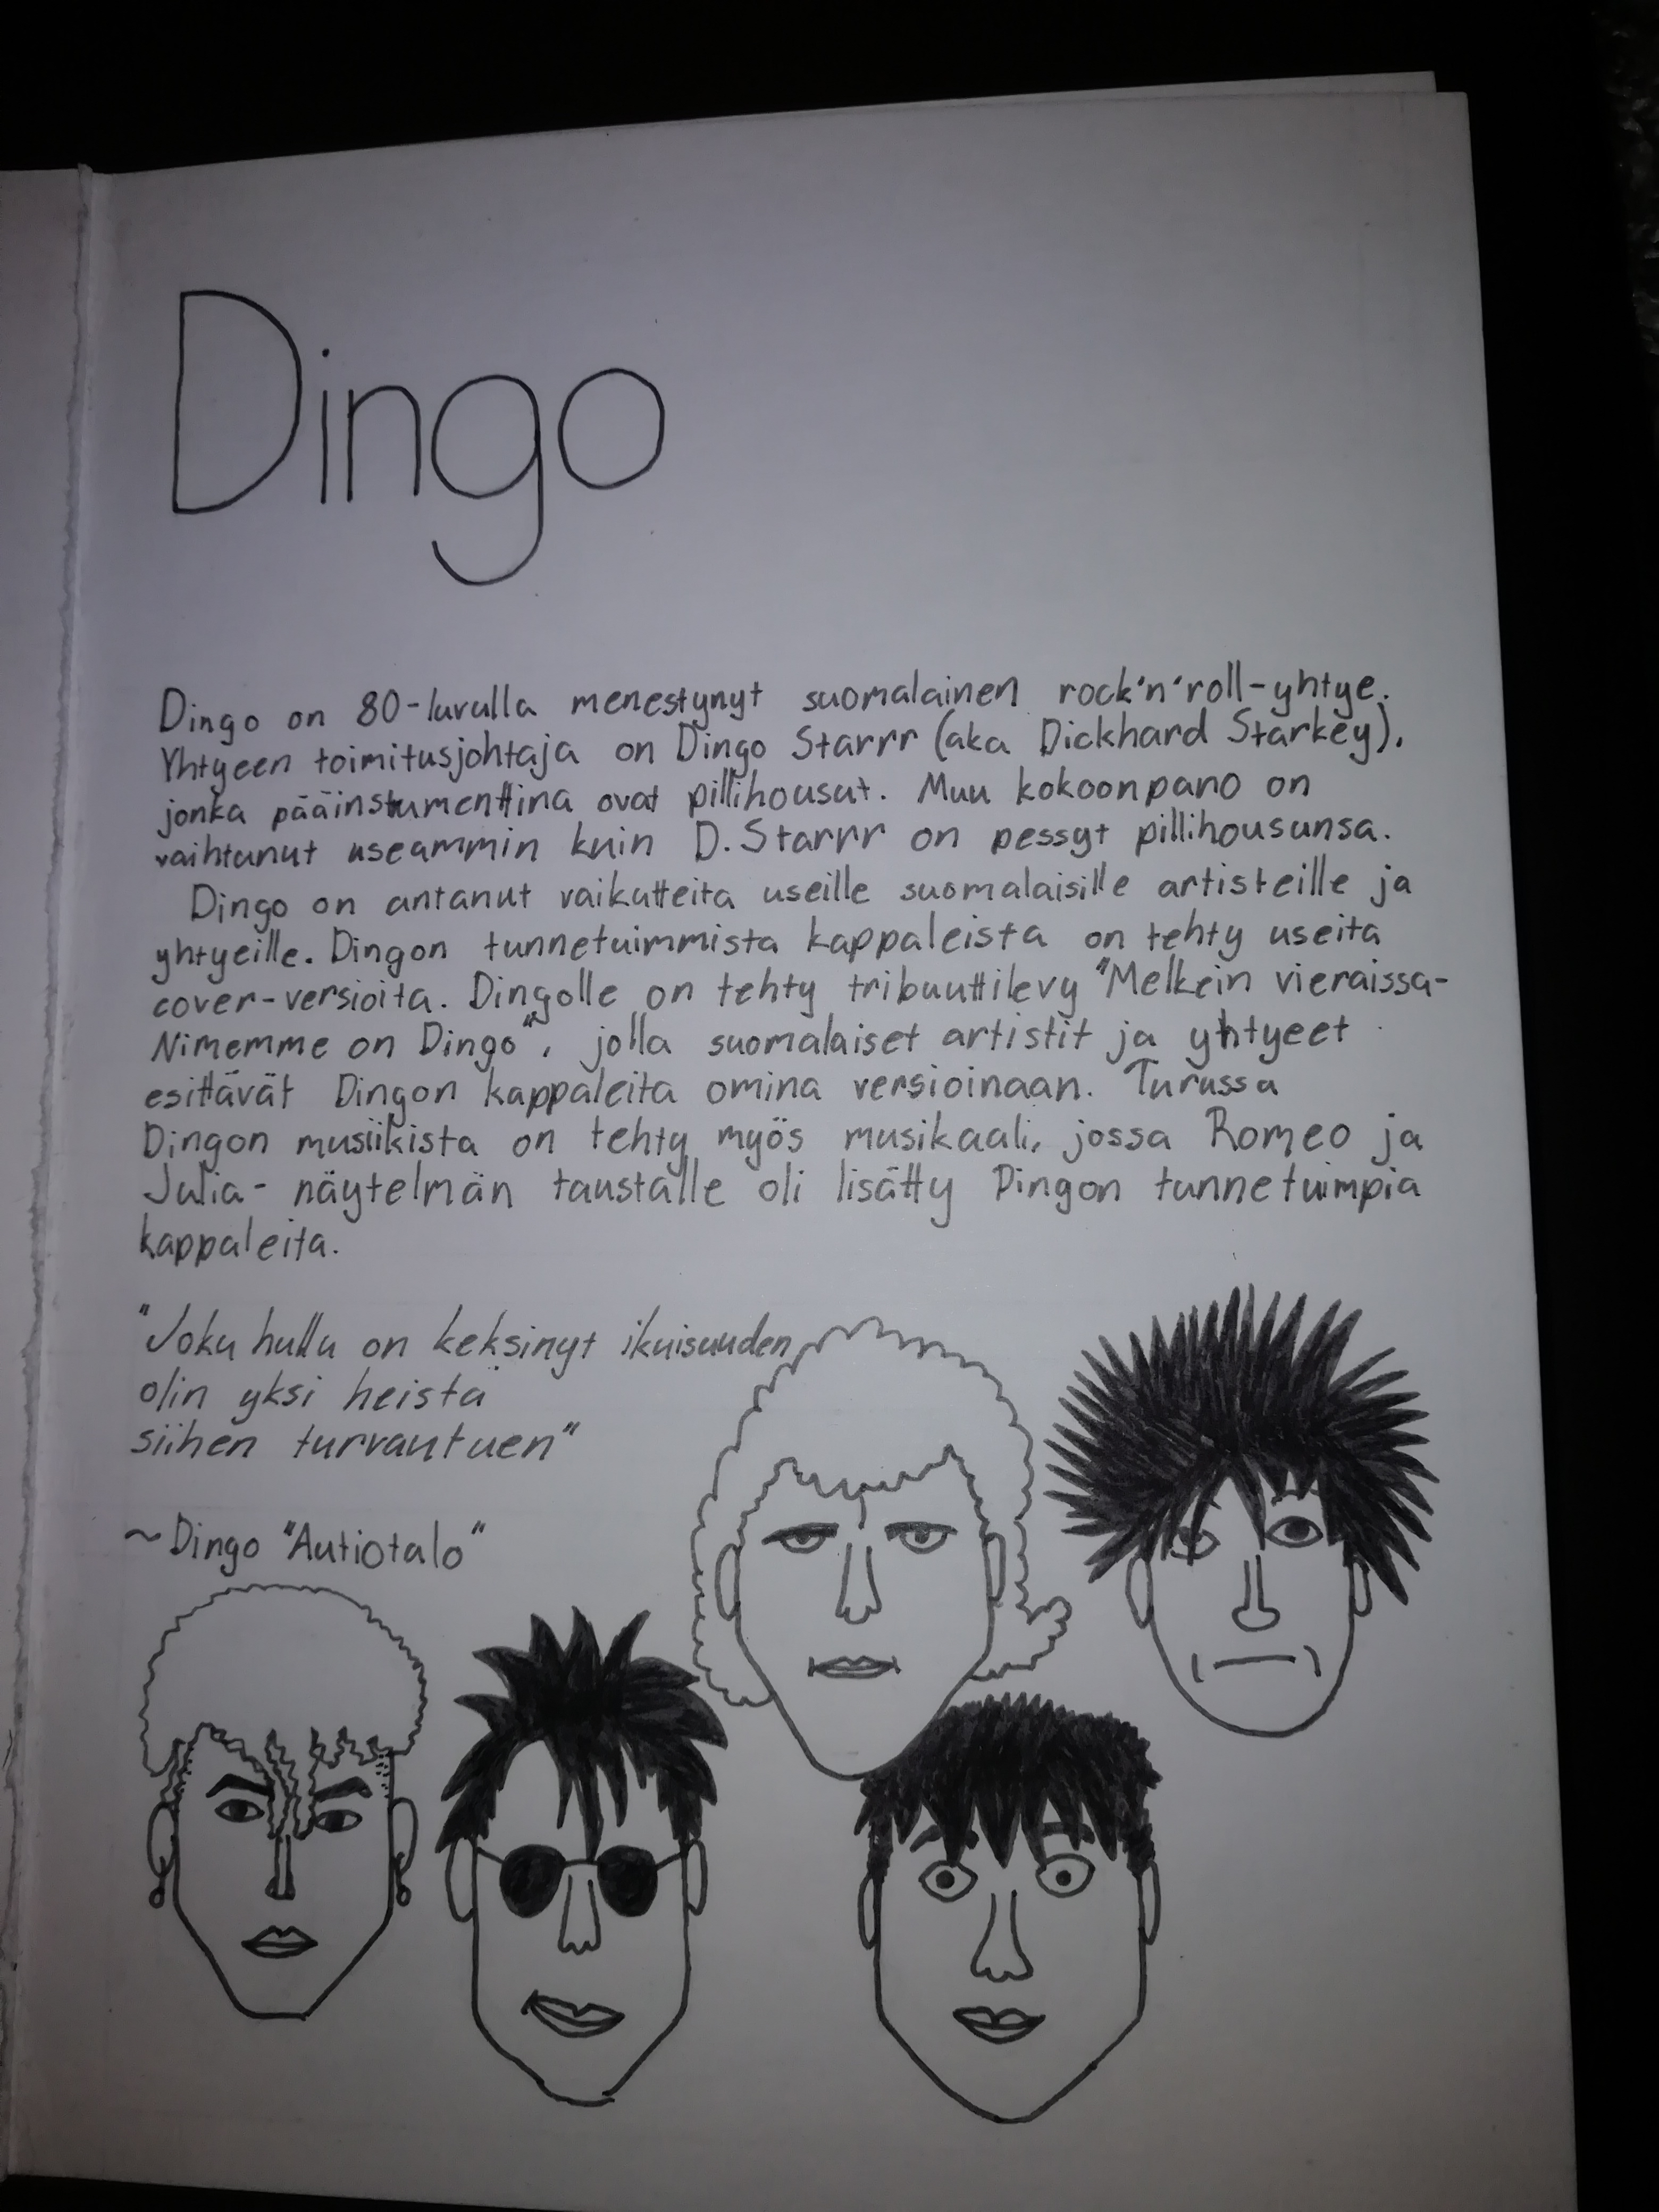 Dingo
Dingo on 80-luvulla menestynyt suomalainen rock'n'roll-yhtye.
Yhtyeen toimitusjohtaja on Dingo Starrr (aka Dickhard Starkey),
jonka pääinstumenttina ovat pillihousut. Muu kokoonpano on
vaihtunut useammin kuin D.Starrr on pessyt pillihousunsa.
Dingo on antanut vaikutteita useille suomalaisille artisteille ja
yhtyeille. Dingon tunnetuimmista kappaleista on tehty useita
cover-versioita. Dingolle on tehty tribuuttilevy "Melkein vieraissa-
Nimemme on Dingo", jolla suomalaiset artistit ja yhtyeet
esittävät Dingon kappaleita omina versioinaan. Turussa
Dingon musiikista on tehty myös musikaali, jossa Romeo ja
Julia- näytelmän taustalle oli lisätty Dingon tunnetuimpia
kappaleita.
"Joku hullu on keksinyt ikuisuuden,
olin yksi heistä
siihen turvautuen"
~Dingo "Autiotalo"